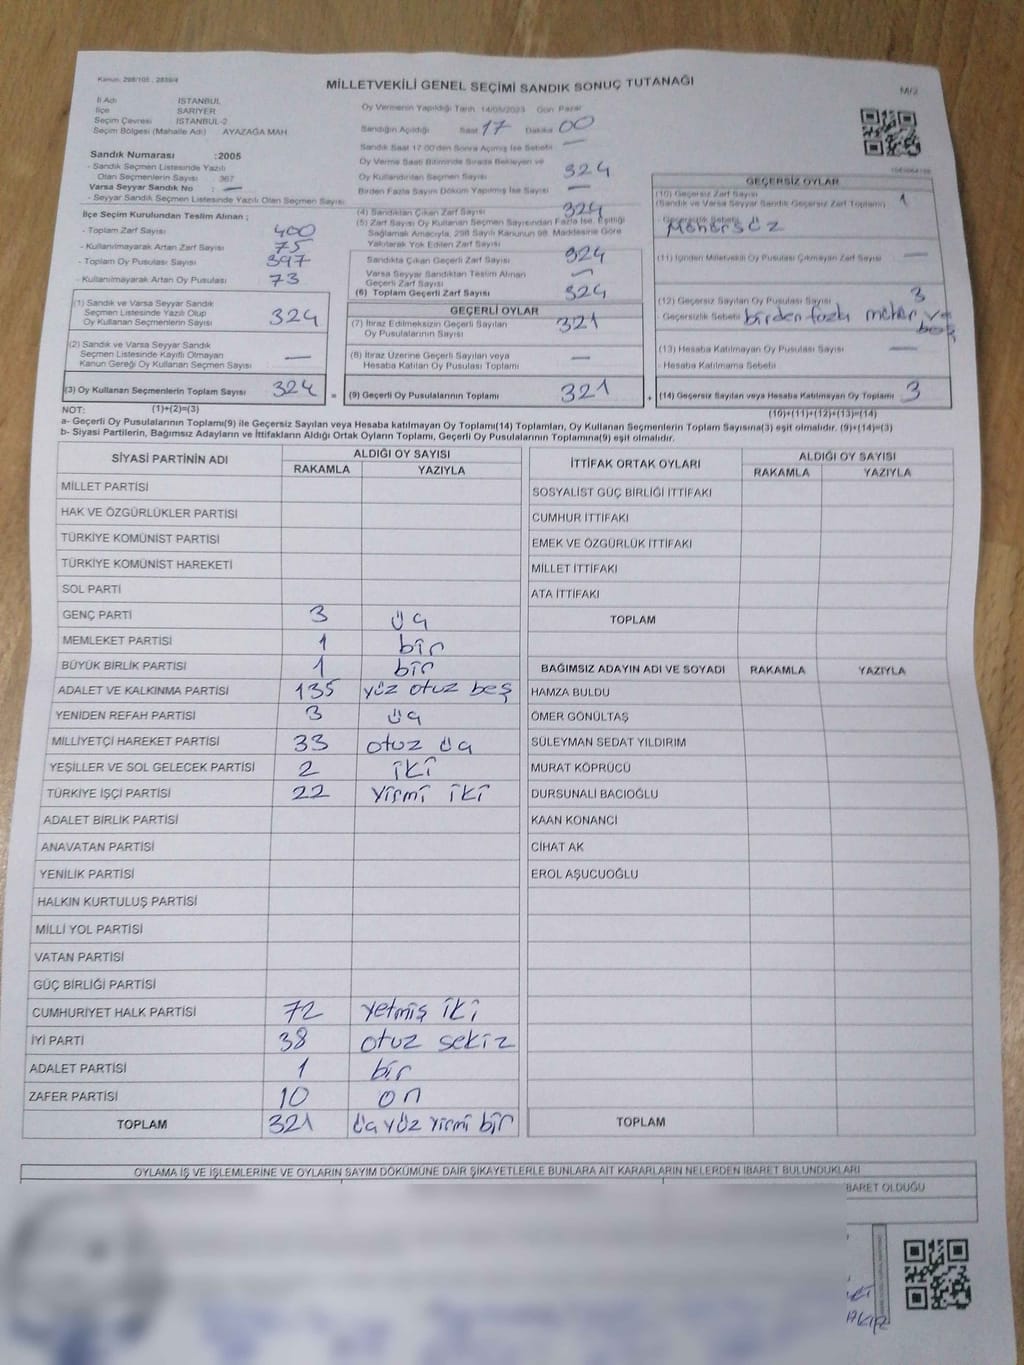 Kanun: 298/105 , 2839/4
MİLLETVEKİLİ GENEL SEÇİMİ SANDIK SONUÇ TUTANAĞI
M/2
İl Adı İSTANBUL
İlçe SARIYER
Seçim Çevresi İSTANBUL-2
Seçim Bölgesi (Mahalle Adı) AYAZAĞA MAH
Sandık Numarası :2005
- Sandık Seçmen Listesinde Yazılı
Olan Seçmenlerin Sayısı : 367
Varsa Seyyar Sandık No : —
- Seyyar Sandık Seçmen Listesinde Yazılı Olan Seçmen Sayısı:
İlçe Seçim Kurulundan Teslim Alınan ;
- Toplam Zarf Sayısı 400
- Kullanılmayarak Artan Zarf Sayısı 75
- Toplam Oy Pusulası Sayısı 397
- Kullanılmayarak Artan Oy Pusulası 73
(1) Sandık ve Varsa Seyyar Sandık
Seçmen Listesinde Yazılı Olup
Oy Kullanan Seçmenlerin Sayısı 324
(2) Sandık ve Varsa Seyyar Sandık
Seçmen Listesinde Kayıtlı Olmayan
Kanun Gereği Oy Kullanan Seçmen Sayısı —
(3) Oy Kullanan Seçmenlerin Toplam Sayısı 324 =
Oy Vermenin Yapıldığı Tarih 14/05/2023 Gün Pazar
Sandığın Açıldığı Saat 17 Dakika 00
Sandık Saat 17:00'den Sonra Açılmış İse Sebebi —
Oy Verme Saati Bitiminde Sırada Bekleyen ve
Oy Kullandırılan Seçmen Sayısı 324
Birden Fazla Sayım Döküm Yapılmış İse Sayısı —
(4) Sandıktan Çıkan Zarf Sayısı 324
(5) Zarf Sayısı Oy Kullanan Seçmen Sayısından Fazla İse, Eşitliği
Sağlamak Amacıyla, 298 Sayılı Kanunun 98. Maddesine Göre
Yakılarak Yok Edilen Zarf Sayısı
Sandıkta Çıkan Geçerli Zarf Sayısı 324
Varsa Seyyar Sandıktan Teslim Alınan
Geçerli Zarf Sayısı —
(6) Toplam Geçerli Zarf Sayısı 324
GEÇERLİ OYLAR
(7) İtiraz Edilmeksizin Geçerli Sayılan
Oy Pusulalarının Sayısı 321
(8) İtiraz Üzerine Geçerli Sayılan veya
Hesaba Katılan Oy Pusulası Toplamı —
(9) Geçerli Oy Pusulalarının Toplamı 321 +
GEÇERSİZ OYLAR
(10) Geçersiz Zarf Sayısı 1
(Sandık ve Varsa Seyyar Sandık Geçersiz Zarf Toplamı)
- Geçersizlik Sebebi
Mühürsüz
(11) İçinden Milletvekili Oy Pusulası Çıkmayan Zarf Sayısı —
(12) Geçersiz Sayılan Oy Pusulası Sayısı 3
- Geçersizlik Sebebi birden fazla mühür ve
boş
(13) Hesaba Katılmayan Oy Pusulası Sayısı —
- Hesaba Katılmama Sebebi
(14) Geçersiz Sayılan veya Hesaba Katılmayan Oy Toplamı 3
NOT: (1)+(2)=(3) (10)+(11)+(12)+(13)=(14)
a- Geçerli Oy Pusulalarının Toplamı(9) ile Geçersiz Sayılan veya Hesaba katılmayan Oy Toplamı(14) Toplamları, Oy Kullanan Seçmenlerin Toplam Sayısına(3) eşit olmalıdır. (9)+(14)=(3)
b- Siyasi Partilerin, Bağımsız Adayların ve İttifakların Aldığı Ortak Oyların Toplamı, Geçerli Oy Pusulalarının Toplamına(9) eşit olmalıdır.
SİYASİ PARTİNİN ADI ALDIĞI OY SAYISI
RAKAMLA YAZIYLA
MİLLET PARTİSİ
HAK VE ÖZGÜRLÜKLER PARTİSİ
TÜRKİYE KOMÜNİST PARTİSİ
TÜRKİYE KOMÜNİST HAREKETİ
SOL PARTİ
GENÇ PARTİ 3 üç
MEMLEKET PARTİSİ 1 bir
BÜYÜK BİRLİK PARTİSİ 1 bir
ADALET VE KALKINMA PARTİSİ 135 yüz otuz beş
YENİDEN REFAH PARTİSİ 3 üç
MİLLİYETÇİ HAREKET PARTİSİ 33 otuz üç
YEŞİLLER VE SOL GELECEK PARTİSİ 2 iki
TÜRKİYE İŞÇİ PARTİSİ 22 yirmi iki
ADALET BİRLİK PARTİSİ
ANAVATAN PARTİSİ
YENİLİK PARTİSİ
HALKIN KURTULUŞ PARTİSİ
MİLLİ YOL PARTİSİ
VATAN PARTİSİ
GÜÇ BİRLİĞİ PARTİSİ
CUMHURİYET HALK PARTİSİ 72 yetmiş iki
İYİ PARTİ 38 otuz sekiz
ADALET PARTİSİ 1 bir
ZAFER PARTİSİ 10 on
TOPLAM 321 üçyüz yirmi bir
İTTİFAK ORTAK OYLARI ALDIĞI OY SAYISI
RAKAMLA YAZIYLA
SOSYALİST GÜÇ BİRLİĞİ İTTİFAKI
CUMHUR İTTİFAKI
EMEK VE ÖZGÜRLÜK İTTİFAKI
MİLLET İTTİFAKI
ATA İTTİFAKI
TOPLAM
BAĞIMSIZ ADAYIN ADI VE SOYADI RAKAMLA YAZIYLA
HAMZA BULDU
ÖMER GÖNÜLTAŞ
SÜLEYMAN SEDAT YILDIRIM
MURAT KÖPRÜCÜ
DURSUNALİ BACIOĞLU
KAAN KONANCİ
CİHAT AK
EROL AŞUCUOĞLU
TOPLAM
OYLAMA İŞ VE İŞLEMLERİNE VE OYLARIN SAYIM DÖKÜMÜNE DAİR ŞİKAYETLERLE BUNLARA AİT KARARLARIN NELERDEN İBARET BULUNDUKLARI
İBARET OLDUĞU